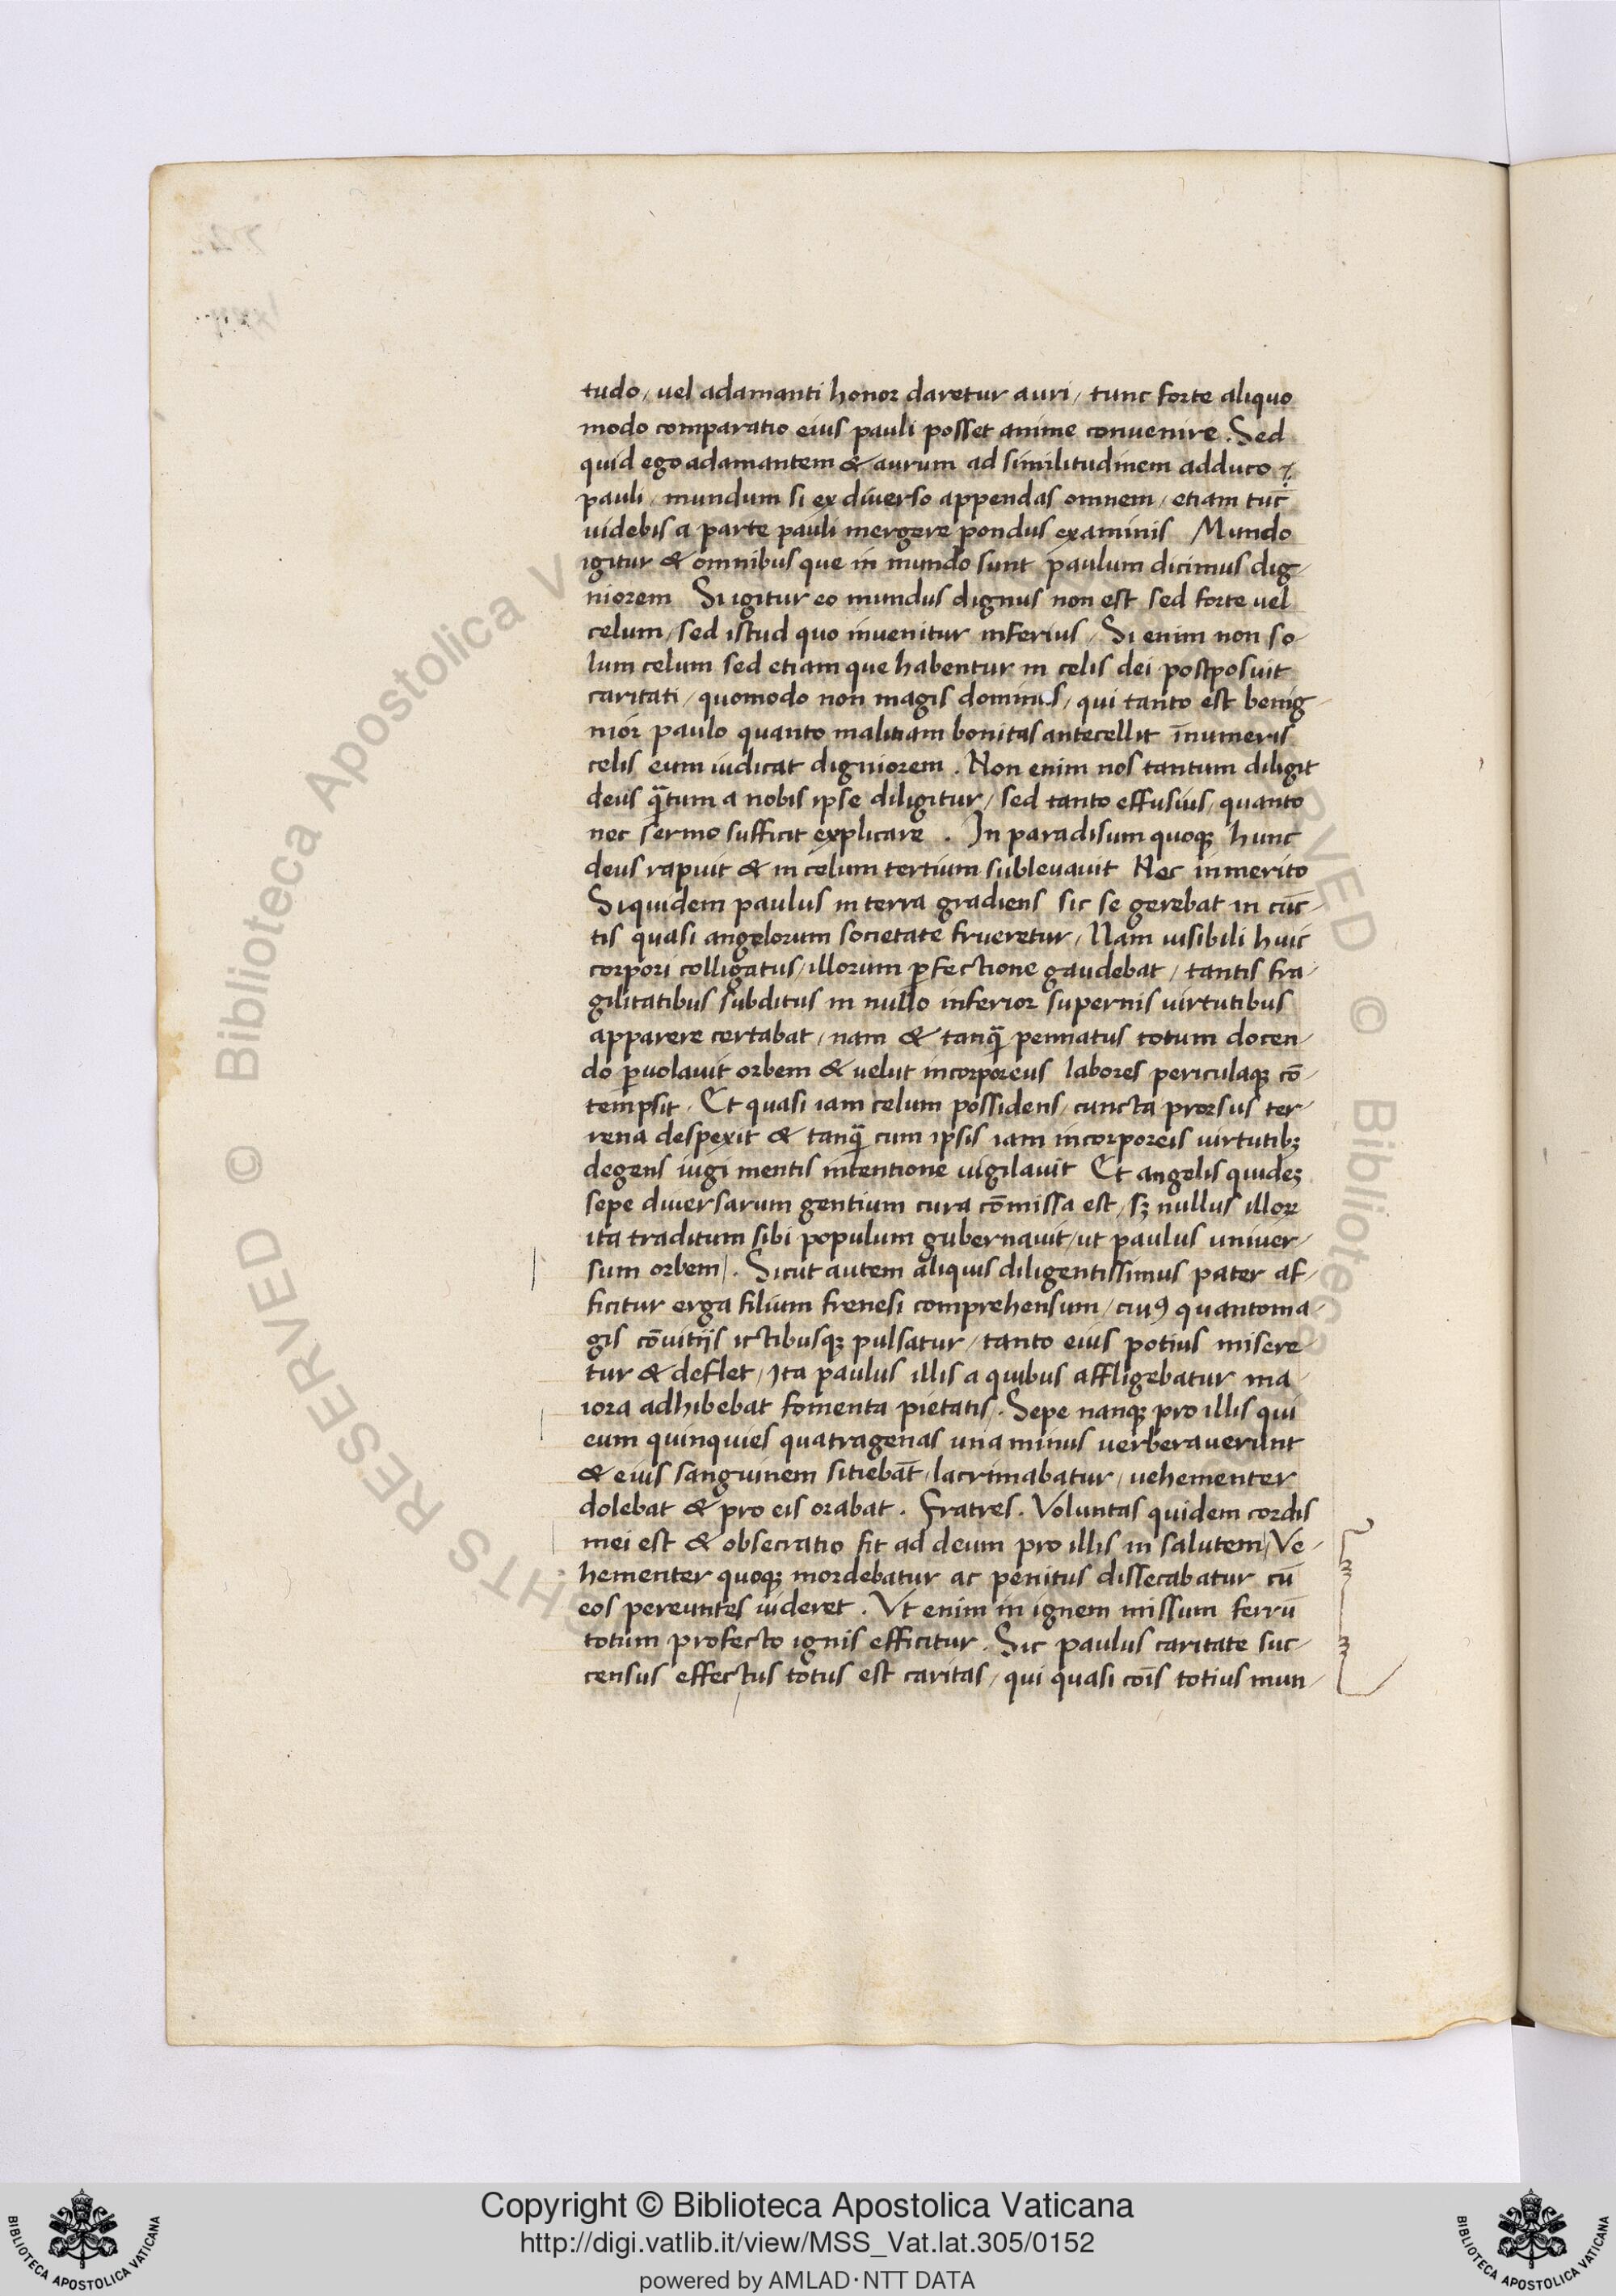 tudo / uel adamanti honor daretur auri / tunc forte aliquo
modo comparatio eius pauli posset anime conuenire . Sed
quid ego adamantem & aurum ad similitudinem adduco ?
pauli / mundum si ex diuerso appendas omnem / etiam tūc
uidebis a parte pauli mergere pondus examinis Mundo
igitur & omnibus que in mundo sunt paulum dicimus dig-
niorem Si igitur eo mundus dignus non est sed forte uel
celum / sed istud quo inuenitur inferius / Si enim non so-
lum celum sed etiam que habentur in celis dei postposuit
caritati / quomodo non magis dominus / qui tanto est benig-
nior paulo quanto malitiam bonitas antecellit īnumeris
celis eum iudicat digniorem . Non enim nos tantum diligit
deus q̄tum a nobis ipse diligitur / sed tanto effusius / quanto
nec sermo sufficit explicare . In paradisum quoqꝫ hunc
deus rapuit & in celum tertium subleuauit Nec inmerito
Siquidem paulus in terra gradiens sic se gerebat in cūc-
tis quasi angelorum societate frueretur / Nam uisibili huic
corpori colligatus / illorum ꝑfectione gaudebat / tantis fra-
gilitatibus subditus in nullo inferior supernis uirtutibus
apparere certabat / nam & tanq̄ pennatus totum docen-
do ꝑuolauit orbem & uelut incorporeus labores periculaqꝫ cō-
tempsit / Et quasi iam celum possidens / cuncta prorsus ter-
rena despexit & tanq̄ cum ipsis iam incorporeis uirtutibꝫ
degens iugi mentis intentione uigilauit Et angelis quideꝫ
sepe diuersarum gentium cura cōmissa est / sꝫ nullus illoꝝ
ita traditum sibi populum gubernauit / ut paulus uniuer-
sum orbem / . Sicut autem aliquis diligentissimus pater af-
ficitur erga filium frenesi comprehensum / cuiꝯ quantoma-
gis cōuitijs ictibusqꝫ pulsatur / tanto eius potius misere-
tur & deflet / Ita paulus illis a quibus affligebatur ma-
iora adhibebat fomenta pietatis / . Sepe nanqꝫ pro illis qui
eum quinquies quatragenas una minus uerberauerunt
& eius sanguinem sitiebāt / lacrimabatur / uehementer
dolebat & pro eis orabat . Fratres . Voluntas quidem cordis
mei est & obsecratio fit ad deum pro illis in salutem / Ve-
hementer quoqꝫ mordebatur ac penitus dissecabatur cū
eos pereuntes uideret . Vt enim in ignem missum ferrū
totum profecto ignis efficitur . Sic paulus caritate suc-
census effectus totus est caritas / qui quasi cōis totius mun-
Copyright © Biblioteca Apostolica Vaticana
http://digi.vatlib.it/view/MSS_Vat.lat.305/0152
powered by AMLAD·NTT DATA